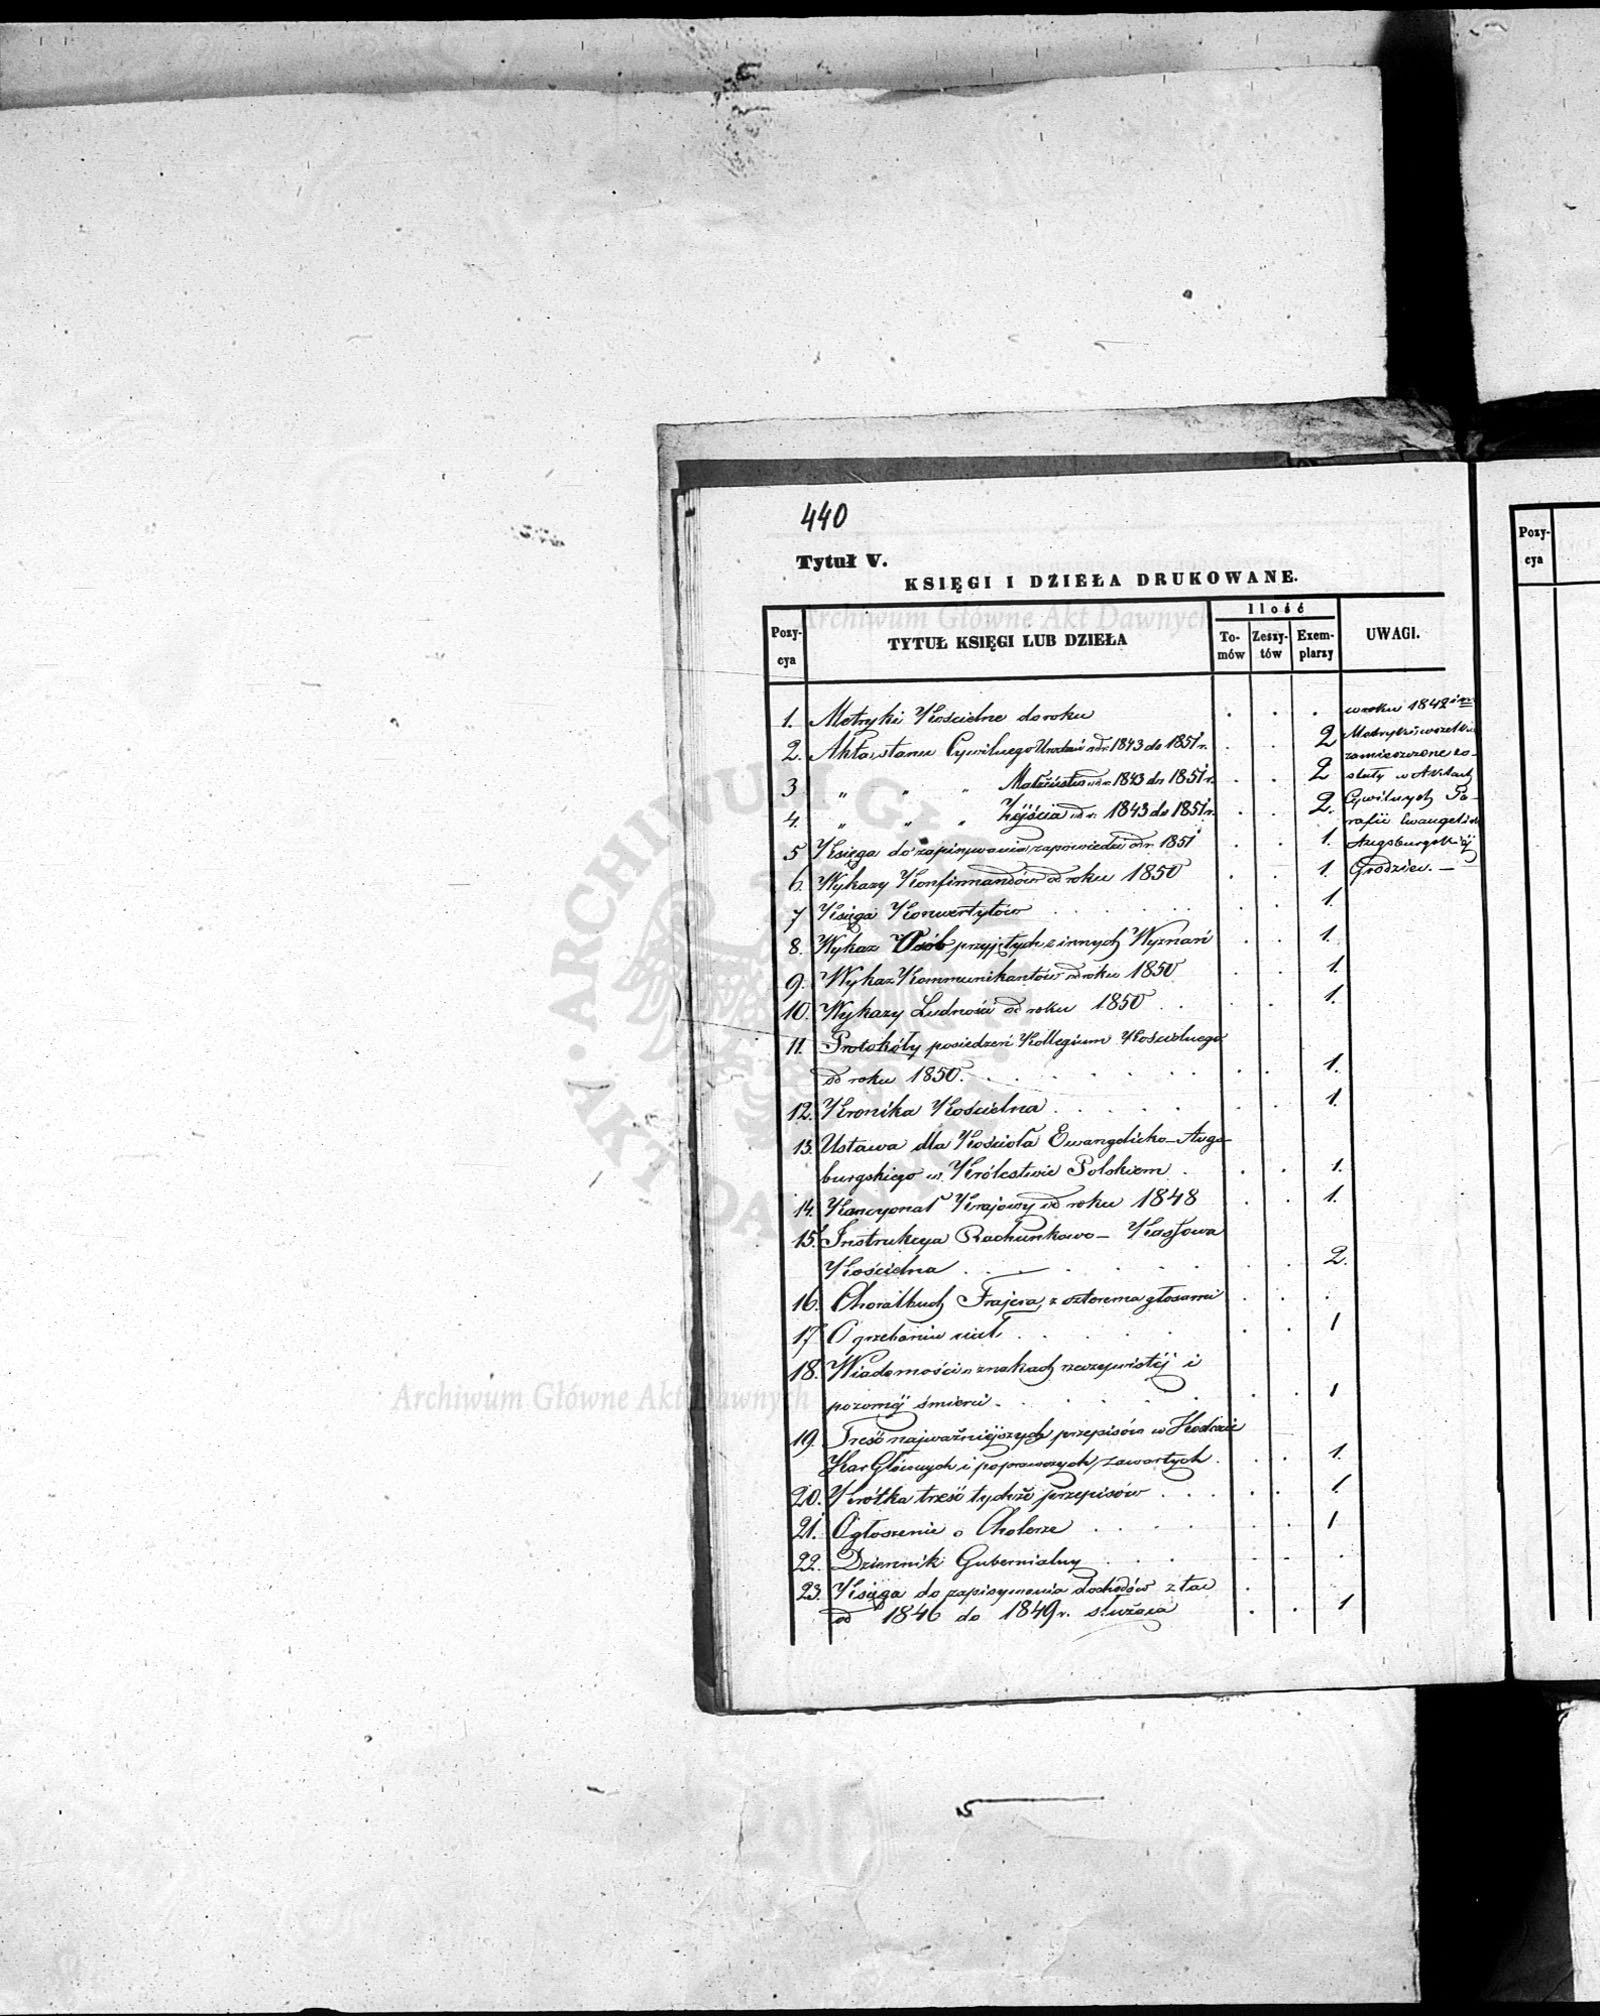 440
Tytuł V.
KSIĘGI I DZIEŁA DRUKOWANE.
Pozy-
cya
TYTUŁ KSIĘGI LUB DZIEŁA
Ilość
To-
mów
Zeszy-
tów
Exem-
plarzy
UWAGI.
1. Metryki Kościelne do roku . . .
2. Akta stanu Cywilnego Urodzin od r. 1843 do 1851 r. . . 2
3 „ „ „ Małżeństw od r. 1843 do 1851 r. . . 2
4. „ „ „ Zejścia od r. 1843 do 1851 r. . . 2.
5 Księga do zapisywania zapowiedzi od r. 1851 . . 1.
6. Wykazy Konfirmandów od roku 1850 . . 1.
7 Księga Konwertytów . . 1.
8. Wykaz Osób przyjętych z innych Wyznań . . 1.
9. Wykaz Kommunikantów od roku 1850 . . 1.
10. Wykazy Ludności od roku 1850 . . 1.
11. Protokóły posiedzeń Kollegium Kościelnego
od roku 1850. . . 1.
12. Kronika Kościelna . . 1.
13. Ustawa dla Kościoła Ewangelicko-Augs-
burgskiego w Królestwie Polskiem . . 1.
14. Kancyonał Krajowy od roku 1848 . . 1.
15. Instrukcya Rachunkowo- Kassowa
Kościelna . . 2.
16. Choralbuch Frajera z czterema głosami . . .
17. O grzebaniu ciał . . 1
18. Wiadomości o znakach rzeczywistéj i
pozornéj śmierci . . 1
19. Treść najważniejszych przepisów w Kodexie
Kar Głównych i poprawczych zawartych . . 1.
20. Krótka treść tychże przepisów . . 1.
21. Ogłoszenie o Cholerze . . 1
22. Dziennik Gubernialny . . .
23. Księga do zapisywania dochodów z
od 1846 do 1849 r. służąca . . 1
w roku 1842
Metryki wszelkie
zamieszczone zo-
stały w Aktach
Cywilnych Pa-
rafii Ewangelick
Augsburgskiéj
Grodziec. —
Pozy-
cya
Archiwum Główne Akt Dawnych
Archiwum Główne Akt Dawnych
ARCHIWUM GŁÓWNE AKT DAWNYCH